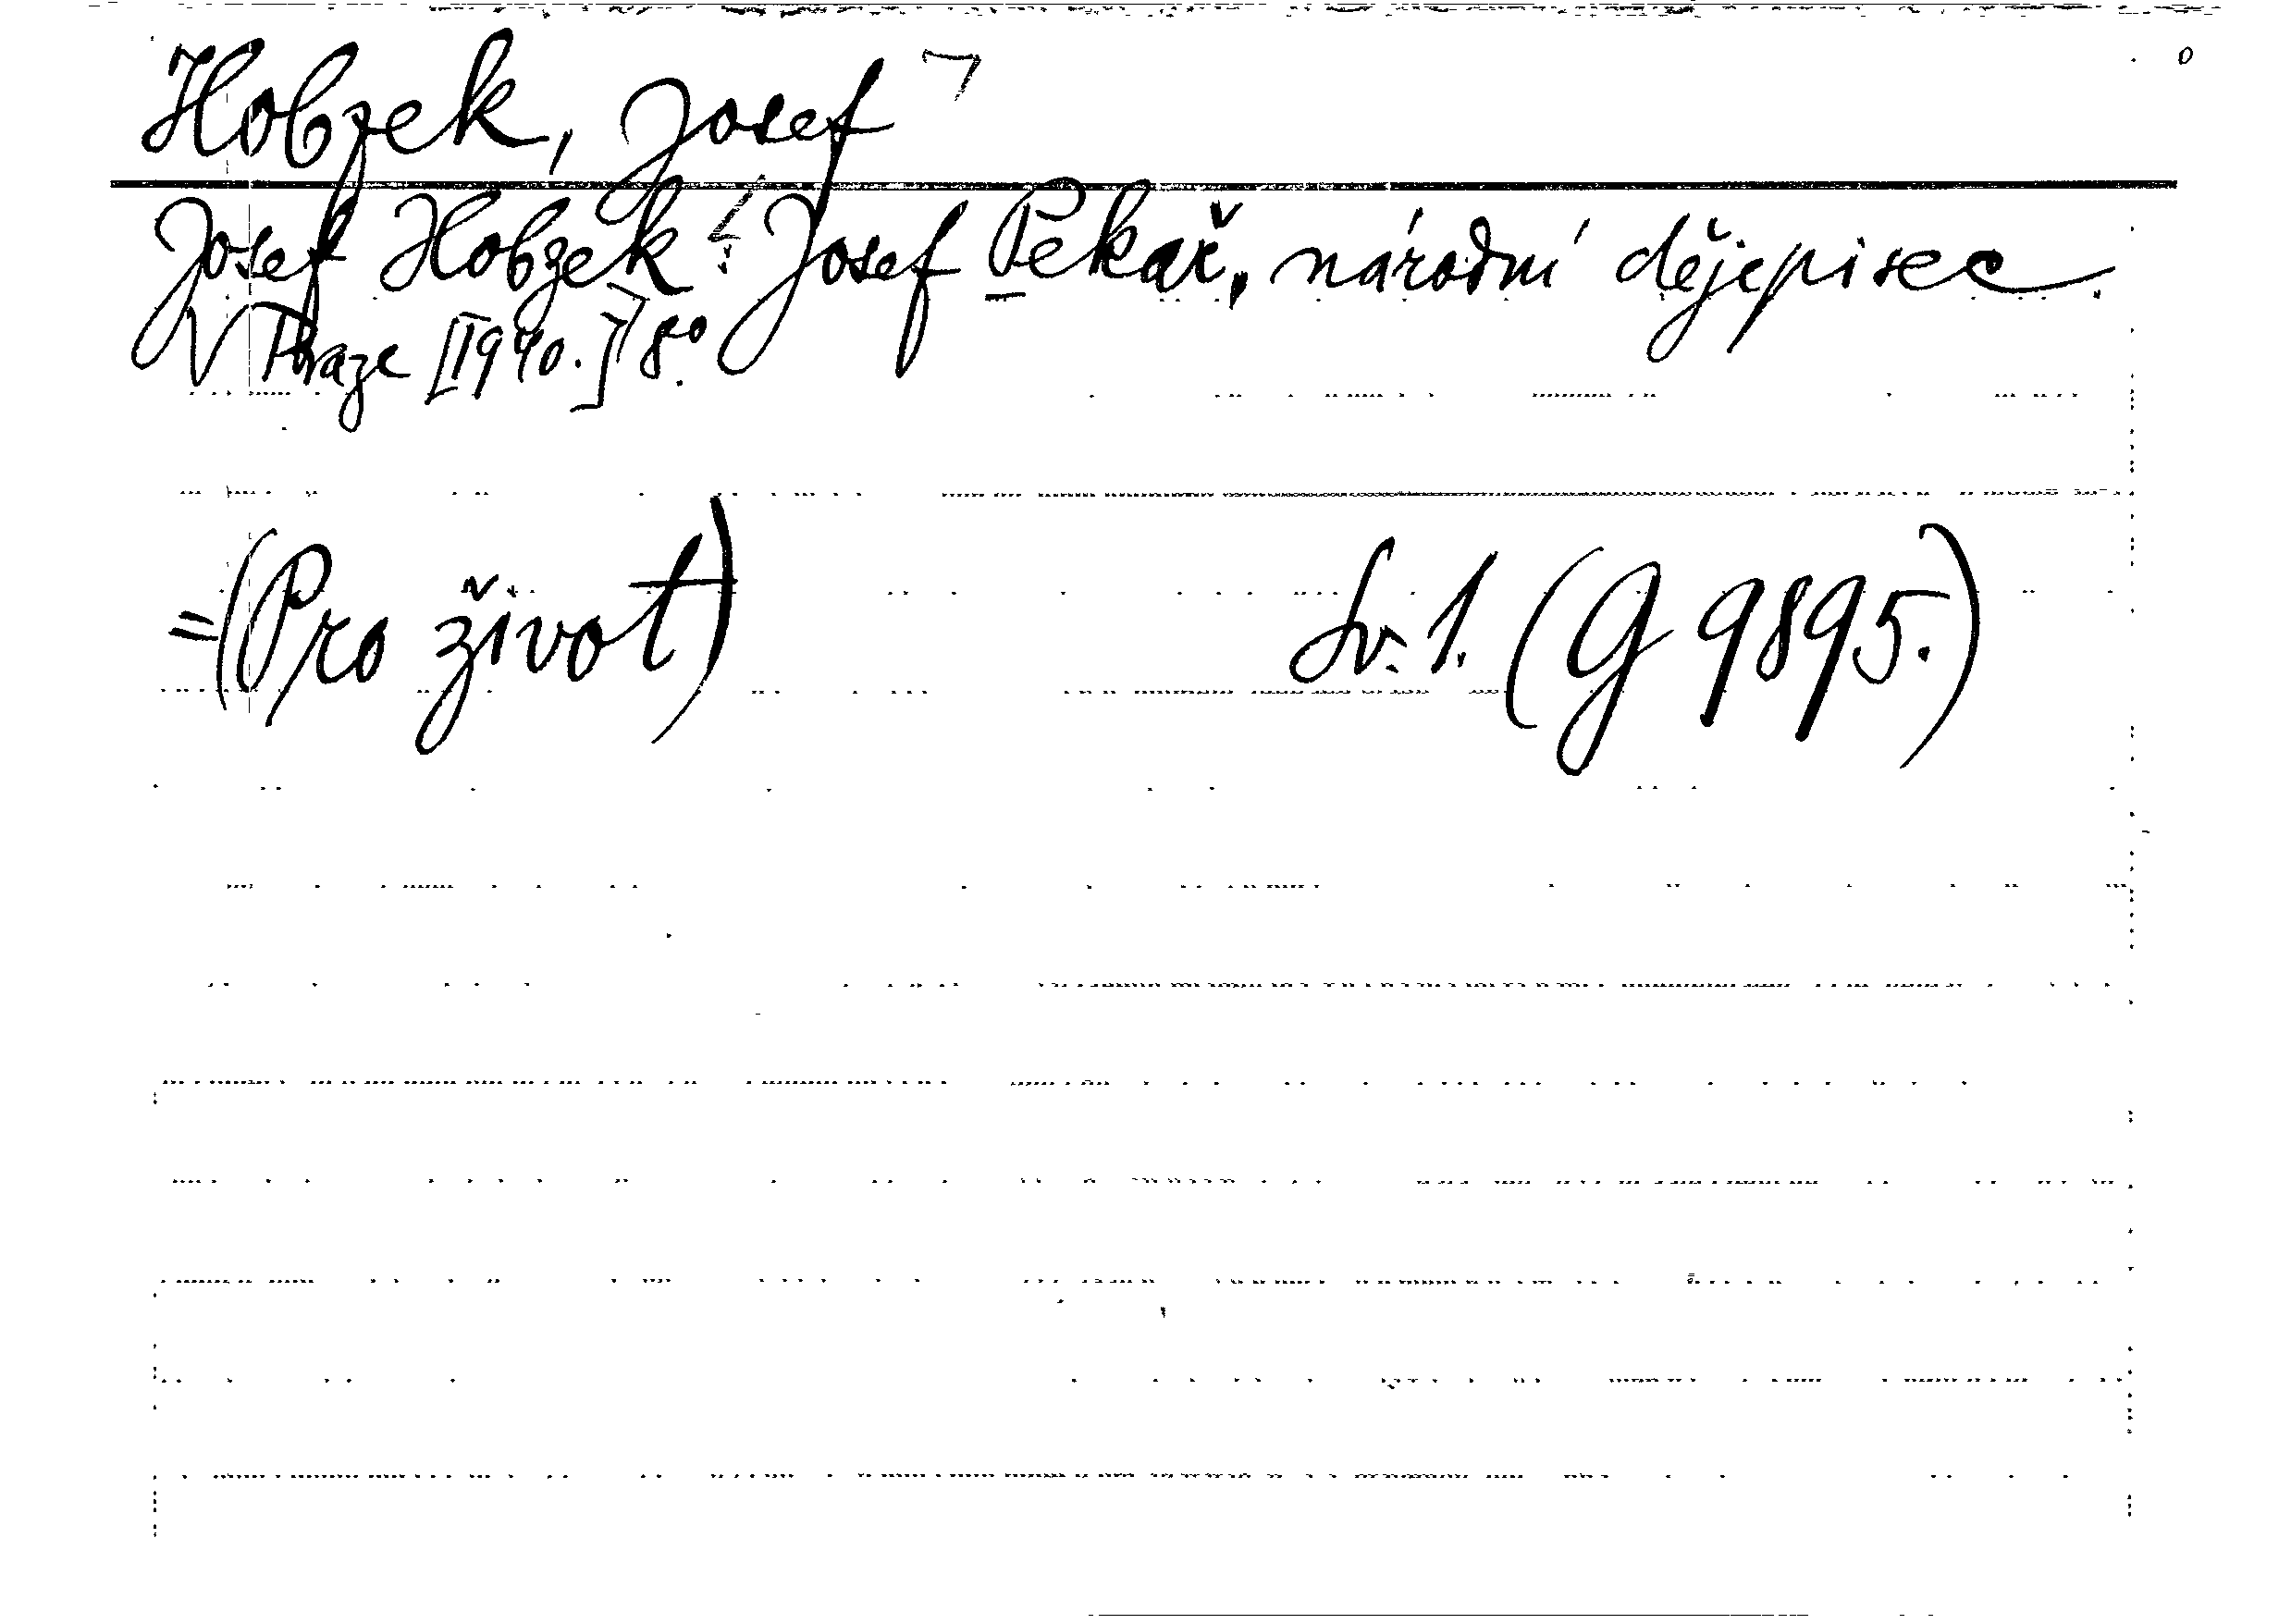 Hobzek, Josef
Josef Hobzek: Josef Pekař, národní dějepisec.
V Praze [1940.] 8°.
=(Pro život) Sv. 1. (G 9895.)